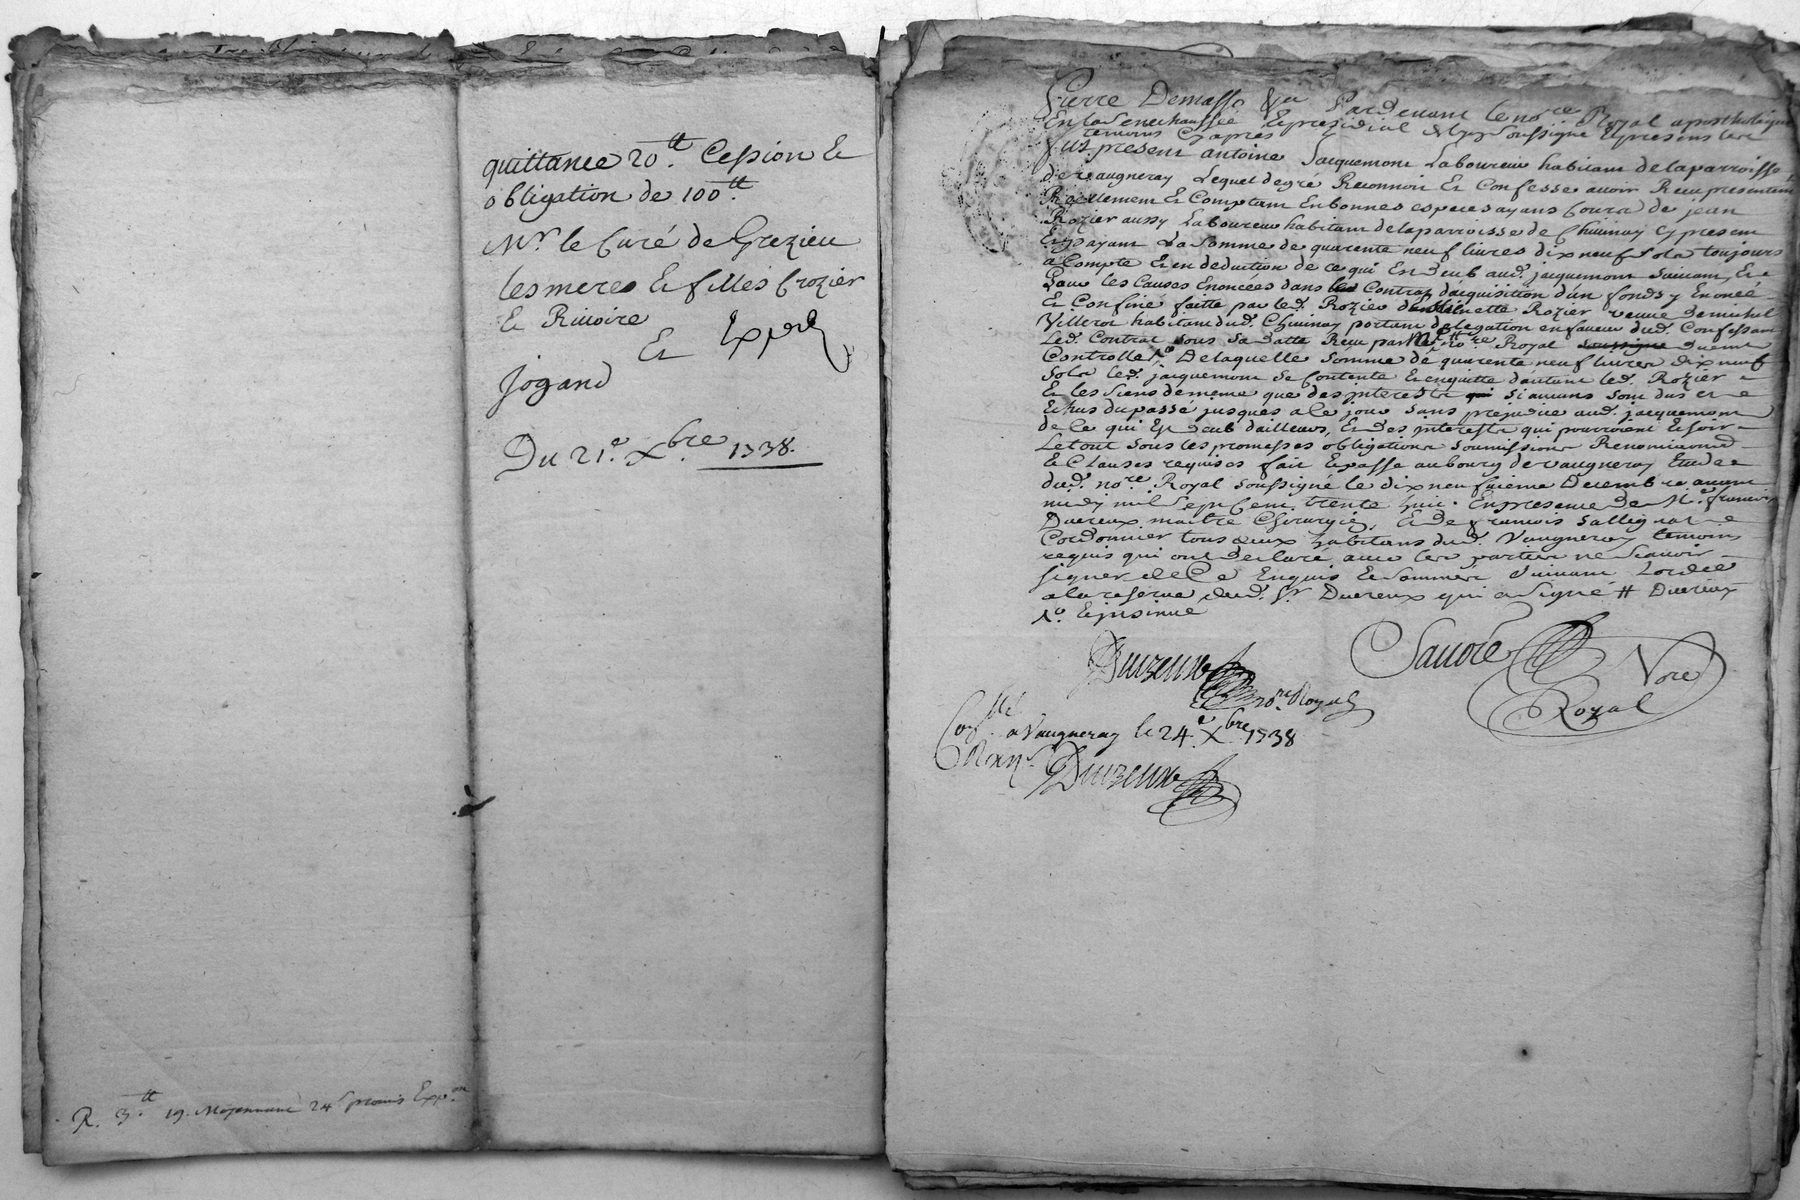 quittance 20.tt Cession &
obligation de 100tt
Mr. le Curé de Grezieu
les meres & filles Crozier
& Rivoire
Et Exp.on
Jogand
Du 21.e Xbre 1738.
R. 3.tt 19. Moyennant 24 s promis Exp.on
Pierre Demasso Par Devant le nore. Royal aposthelique
En la Senechaussée & presidial de Lyon soussigné & presens les
temoins Cy apres
fut present antoine Jacquemont Laboureur habitant de la parroisse
de Vaugneray Lequel de gré Reconnoit & Confesse avoir Receu presentem
Reellement & Comptant En bonnes especes ayans Cours de jean
Rozier aussy Laboureur habitant de la parroisse de Chivinay Cy present
& payant La Somme de quarente neuf livres dix neuf sols toujours
a Compte & en deduction de ce qui Est deub aud. jacquemont suivant, &
pour les Causes Enoncées dans Contrat d'acquisition d'un fonds y Enoncé
& Confiné faitte par led. Rozier Rozier veuve de michel
Villerot habitant dud. Chivinay portant delegation en faveur dud. Confessant
Led. Contrat sous sa datte Receu par Me nore Royal soussigné duement
Controllé, De laquelle somme de quarente neuf livres dix neuf
sols led. jacquemont se Contente & en quitte d'autant led. Rozier
& les Siens de meme que des interests si aucuns sont dus &
Echus du passé jusques a ce jour sans prejudice aud. jacquemont
de Ce qui Est deub d'ailleurs, & des interests qui pourroient Echoir
Le tout sous les promesses obligations soumissions Renonciaons
& Clauses requises fait & passé au bourg de Vaugneray Etude
dud. nore. Royal soussigné le dix neufvieme Decembre avant
midy mil Sept Cent trente huit. En presence de Me. francois
Duvreux maitre Chirurgien, & de francois
Cordonnier tous deux habitans dud. Vaugneray temoins
requis qui ont declaré avec les parties ne Scavoir
signer de Ce Enquis & Sommés Suivant Lordce
a la reserve dud. Sr. Duvreux qui a Signé # Duvreux
& insinué
Sauore Nore
Royal
nore Royal
Conllé a Vaugneray le 24.e Xbre 1738